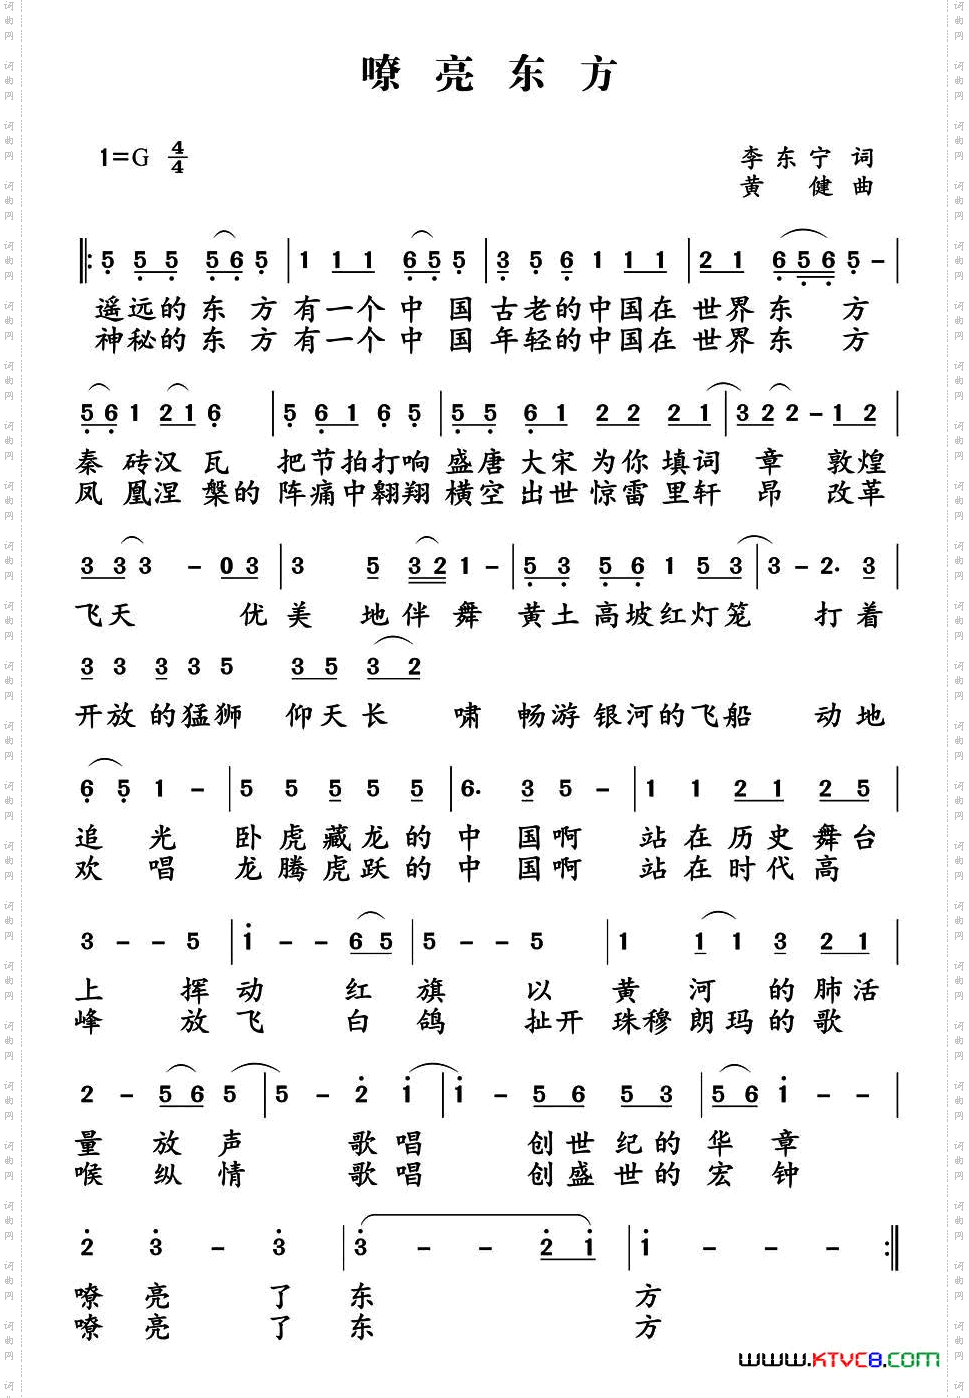 嘹亮东方
1=G 4/4
李东宁 词
黄健 曲
5 5 5 5 6 5 | 1 1 1 6 5 5 | 3 5 6 1 1 1 | 2 1 6 5 6 5 - |
遥远的东方有一个中国古老的中国在世界东方
神秘的东方有一个中国年轻的中国在世界东方
5 6 1 2 1 6 | 5 6 1 6 5 | 5 5 6 1 2 2 2 1 | 3 2 2 - 1 2 |
秦砖汉瓦 把节拍打响盛唐大宋为你填词章 敦煌
凤凰涅槃的阵痛中翱翔横空出世惊雷里轩昂 改革
3 3 3 - 0 3 | 3 5 3 2 1 - | 5 3 5 6 1 5 3 | 3 - 2. 3 |
飞天 优美地伴舞 黄土高坡红灯笼 打着
3 3 3 3 5 3 5 3 2
开放的猛狮 仰天长啸 畅游银河的飞船 动地
6 5 1 - | 5 5 5 5 5 | 6. 3 5 - | 1 1 2 1 2 5 |
追光 卧虎藏龙的中国啊 站在历史舞台
欢唱 龙腾虎跃的中国啊 站在时代高
3 - - 5 | 1 - - 6 5 | 5 - - 5 | 1 1 1 3 2 1 |
上 挥动 红旗 以黄河的肺活
峰 放飞 白鸽 扯开珠穆朗玛的歌
2 - 5 6 5 | 5 - 2 1 | 1 - 5 6 5 3 | 5 6 1 - - |
量 放声 歌唱 创世纪的华章
喉 纵情 歌唱 创盛世的宏钟
2 3 - 3 | 3 - - 2 1 | 1 - - - :|
嘹亮了东方
嘹亮了东方
www.KTVC8.COM
词曲网